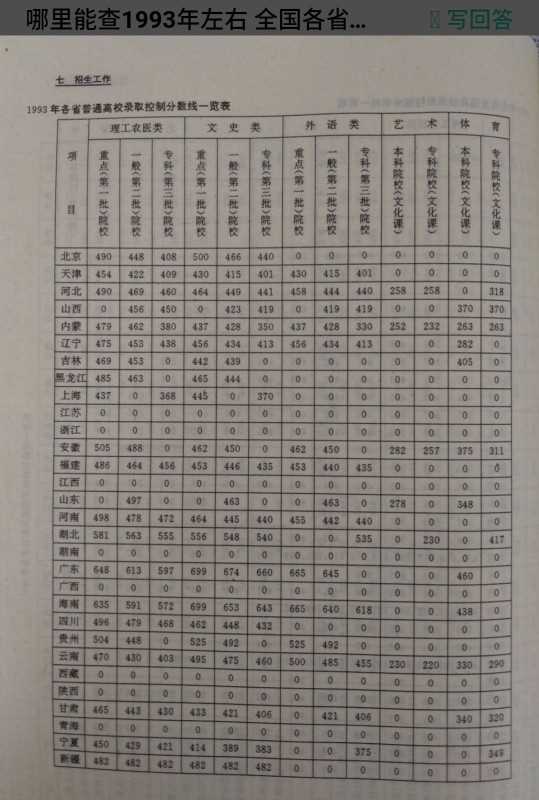 哪里能查1993年左右 全国各省... 写回答
七 招生工作
1993年各省普通高校录取控制分数线一览表
项目 理工农医类 文史类 外语类 艺术 体育
重点(第一批)院校 一般(第二批)院校 专科(第三批)院校 重点(第一批)院校 一般(第二批)院校 专科(第三批)院校 重点(第一批)院校 一般(第二批)院校 专科(第三批)院校 本科院校(文化课) 专科院校(文化课) 本科院校(文化课) 专科院校(文化课)
北京 490 448 408 500 466 440 0 0 0 0 0 0 0
天津 454 422 409 430 415 401 430 415 401 0 0 0 0
河北 490 469 460 464 449 441 458 444 440 258 258 0 318
山西 0 456 450 0 423 419 0 419 419 0 0 370 370
内蒙 479 462 380 437 428 350 437 428 330 252 232 263 263
辽宁 475 453 438 456 434 413 456 434 413 0 0 282 0
吉林 469 453 0 442 439 0 0 0 0 0 0 405 0
黑龙江 485 463 0 465 444 0 0 0 0 0 0 0 0
上海 437 0 368 445 0 370 0 0 0 0 0 0 0
江苏 0 0 0 0 0 0 0 0 0 0 0 0 0
浙江 0 0 0 0 0 0 0 0 0 0 0 0 0
安徽 505 488 0 462 450 0 462 450 0 282 257 375 311
福建 486 464 456 453 446 435 453 440 435 0 0 0 0
江西 0 0 0 0 0 0 0 0 0 0 0 0 0
山东 0 497 0 0 463 0 0 463 0 278 0 348 0
河南 498 478 472 464 445 440 455 442 440 0 0 0 0
湖北 581 563 555 556 548 540 0 0 535 0 230 0 417
湖南 0 0 0 0 0 0 0 0 0 0 0 0 0
广东 648 613 597 699 674 660 665 645 0 0 0 460 0
广西 0 0 0 0 0 0 0 0 0 0 0 0 0
海南 635 591 572 699 653 643 665 640 618 0 0 438 0
四川 496 479 468 462 448 432 0 0 0 0 0 0 0
贵州 504 448 0 525 492 0 525 492 0 0 0 0 0
云南 470 430 403 495 475 460 500 485 455 230 220 330 290
西藏 0 0 0 0 0 0 0 0 0 0 0 0 0
陕西 0 0 0 0 0 0 0 0 0 0 0 0 0
甘肃 465 443 430 433 421 406 0 421 406 0 0 340 320
青海 0 0 0 0 0 0 0 0 0 0 0 0 0
宁夏 450 429 421 414 389 383 0 0 375 0 0 0 349
新疆 482 482 482 482 482 482 0 0 0 0 0 0 0